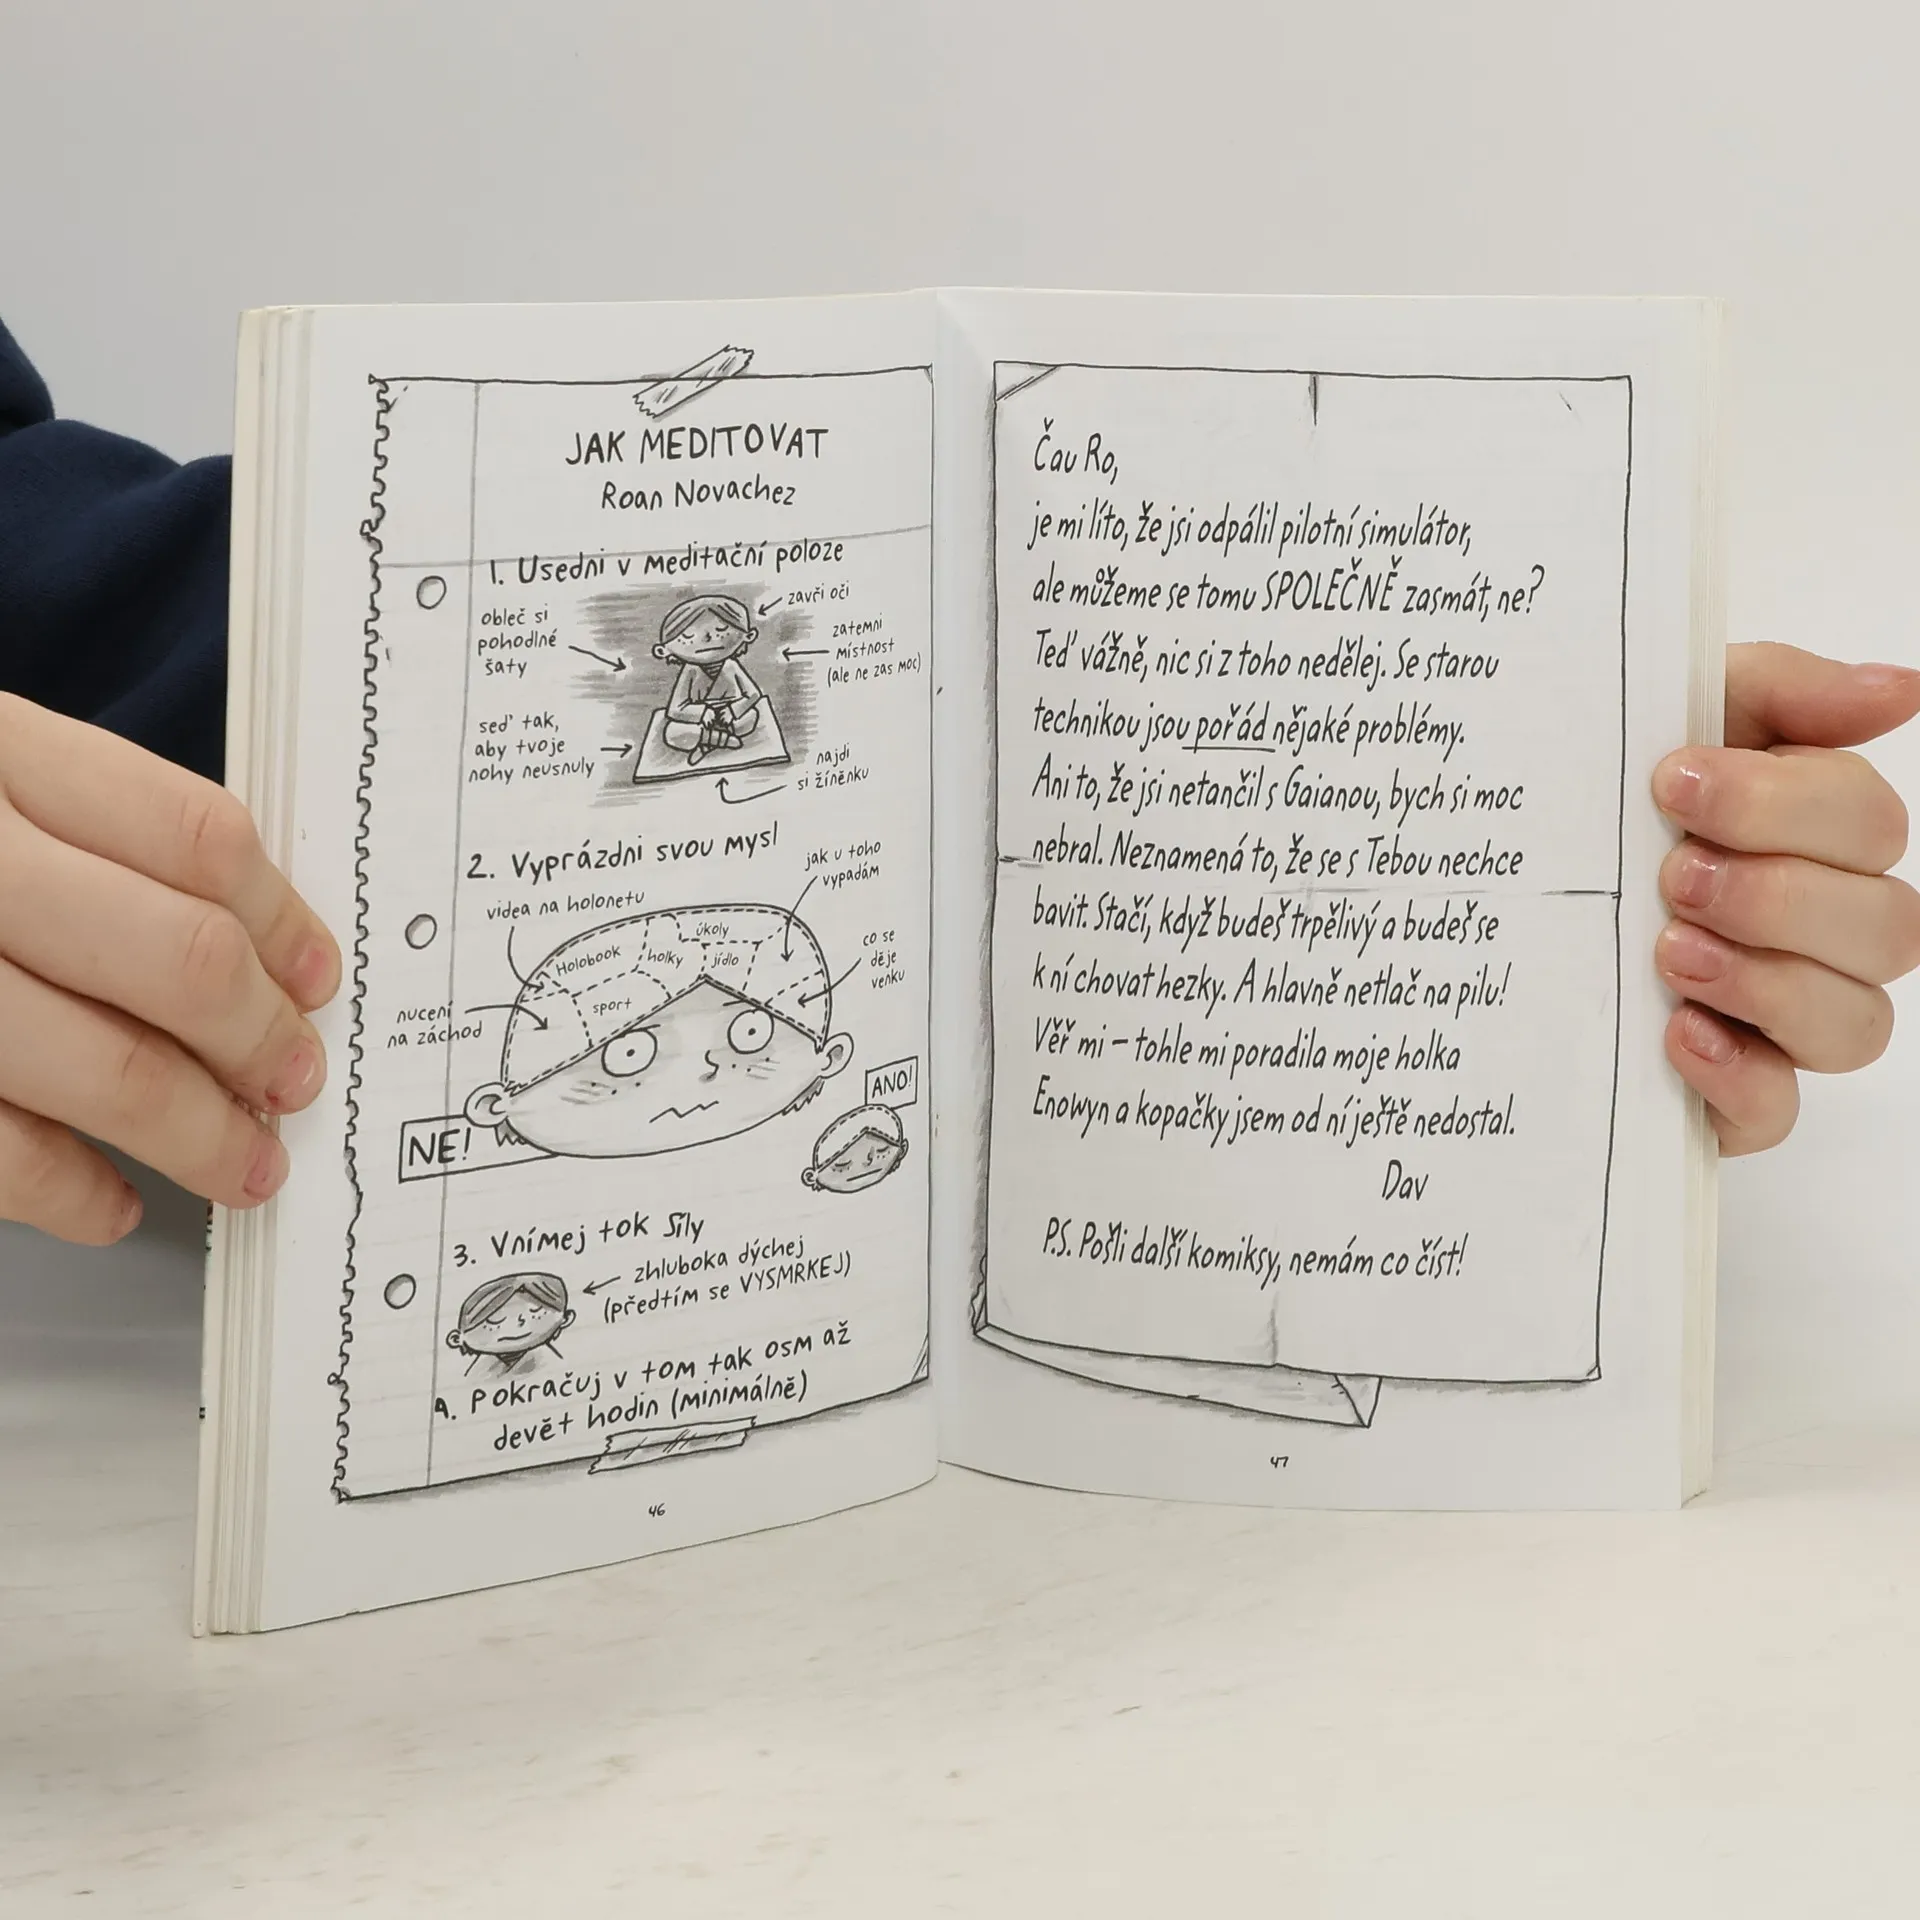 JAK MEDITOVAT
Roan Novachez
1. Usedni v meditační poloze
obleč si
pohodlné
šaty
zavři oči
zatemni
místnost
(ale ne zas moc)
seď tak,
aby tvoje
nohy neusnuly
najdi
si žíněnku
2. Vyprázdni svou mysl
jak u toho
vypadám
videa na holonetu
úkoly
Holobook
holky
jídlo
co se
děje
venku
sport
nucení
na záchod
NE!
ANO!
3. Vnímej tok Síly
zhluboka dýchej
(předtím se VYSMRKEJ)
4. Pokračuj v tom tak osm až
devět hodin (minimálně)
46
Čau Ro,
je mi líto, že jsi odpálil pilotní simulátor,
ale můžeme se tomu SPOLEČNĚ zasmát, ne?
Teď vážně, nic si z toho nedělej. Se starou
technikou jsou pořád nějaké problémy.
Ani to, že jsi netančil s Gaianou, bych si moc
nebral. Neznamená to, že se s Tebou nechce
bavit. Stačí, když budeš trpělivý a budeš se
k ní chovat hezky. A hlavně netlač na pilu!
Věř mi – tohle mi poradila moje holka
Enowyn a kopačky jsem od ní ještě nedostal.
Dav
P.S. Pošli další komiksy, nemám co číst!
47